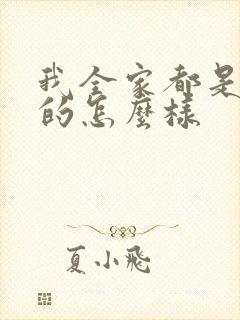 我全家都是
的怎麼樣
夏小飛